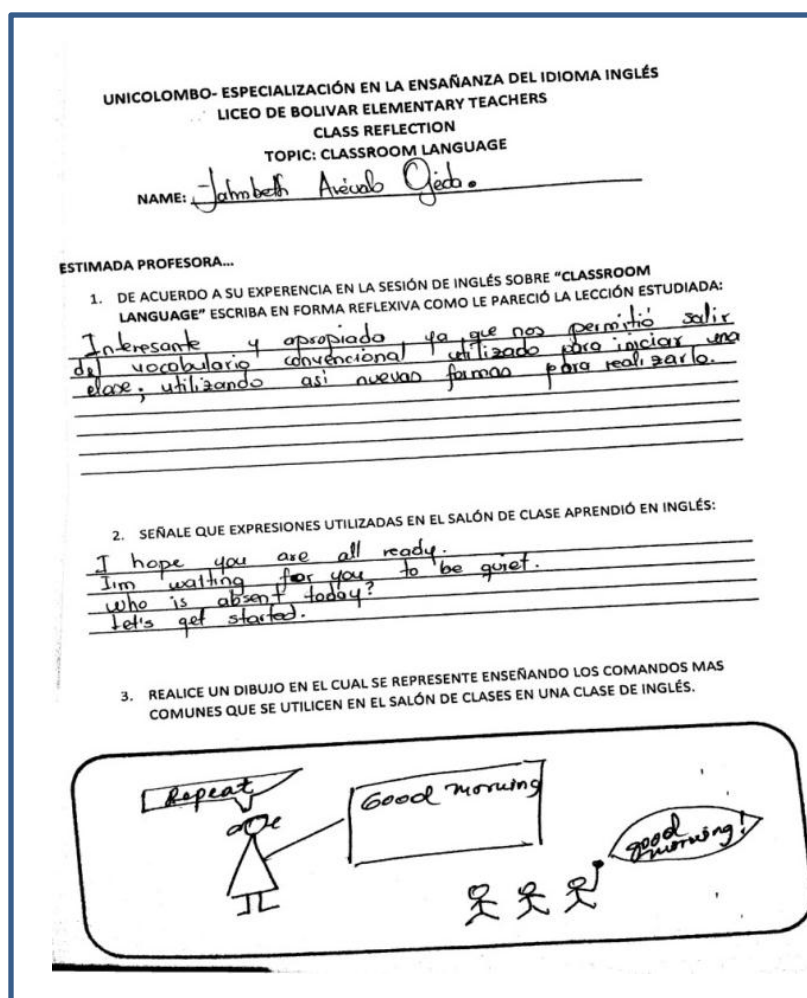 UNICOLOMBO- ESPECIALIZACIÓN EN LA ENSAÑANZA DEL IDIOMA INGLÉS
LICEO DE BOLIVAR ELEMENTARY TEACHERS
CLASS REFLECTION
TOPIC: CLASSROOM LANGUAGE
NAME: Arévalo
ESTIMADA PROFESORA...
1. DE ACUERDO A SU EXPERENCIA EN LA SESIÓN DE INGLÉS SOBRE "CLASSROOM
LANGUAGE" ESCRIBA EN FORMA REFLEXIVA COMO LE PARECIÓ LA LECCIÓN ESTUDIADA:
Interesante y apropiado, ya que nos permitió salir
del vocabulario convencional utilizado para iniciar una
clase; utilizando asi nuevas formas para realizarla.
2. SEÑALE QUE EXPRESIONES UTILIZADAS EN EL SALÓN DE CLASE APRENDIÓ EN INGLÉS:
I hope you are all ready.
I'm waiting for you to be quiet.
who is absent today?
Let's get started.
3. REALICE UN DIBUJO EN EL CUAL SE REPRESENTE ENSEÑANDO LOS COMANDOS MAS
COMUNES QUE SE UTILICEN EN EL SALÓN DE CLASES EN UNA CLASE DE INGLÉS.
Repeat
Good morning
good
morning!